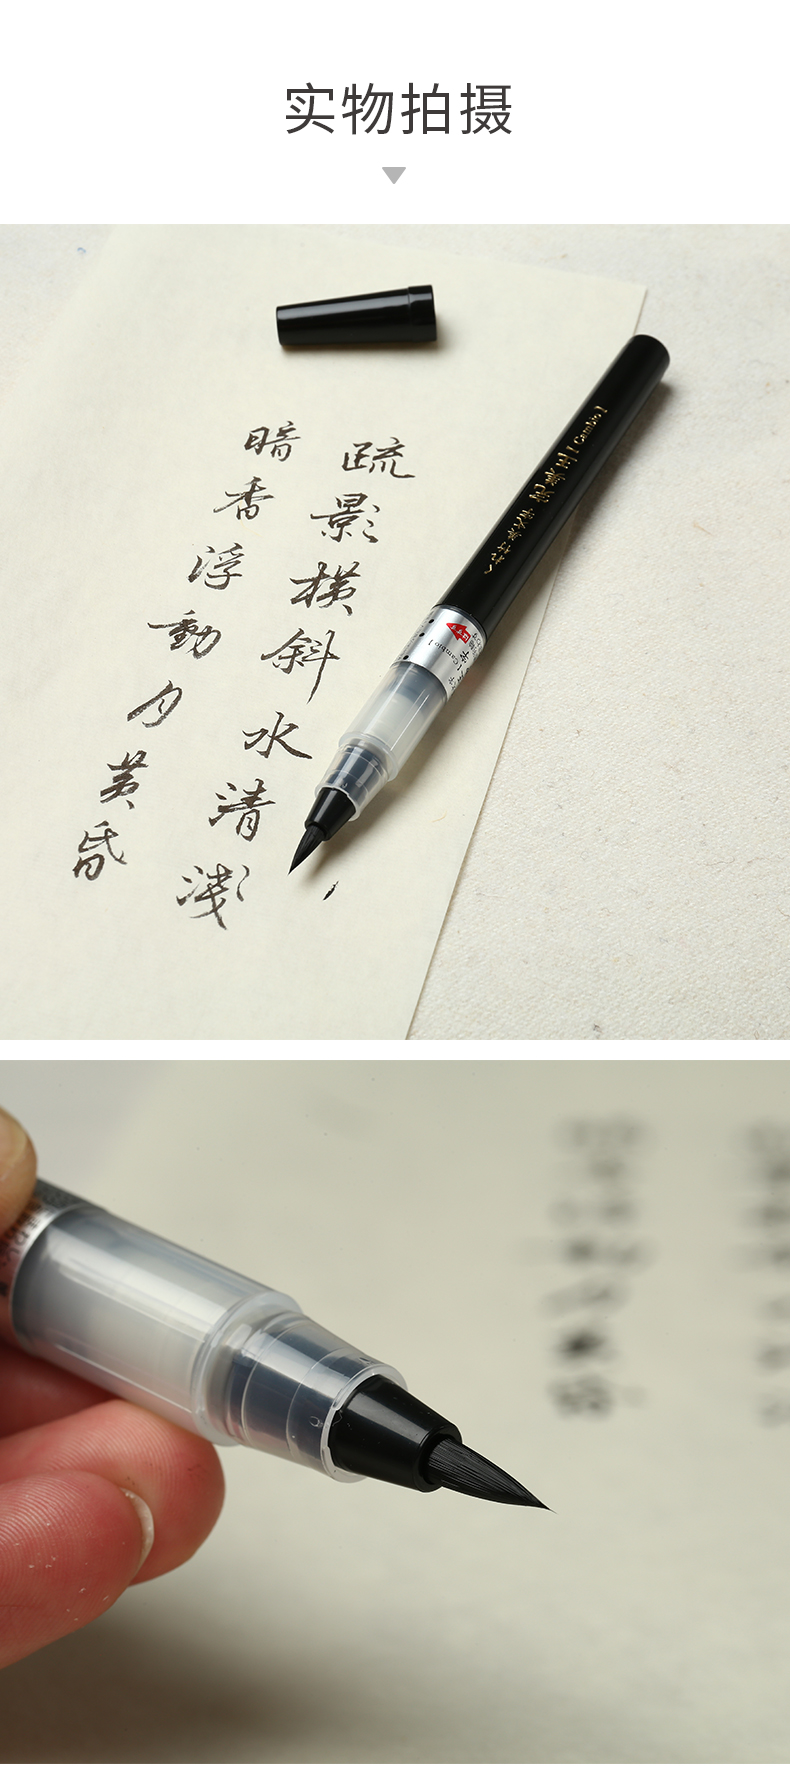 实物拍摄
疏影横斜水清淺
暗香浮動月黄昏
Cambio1
Cambio1